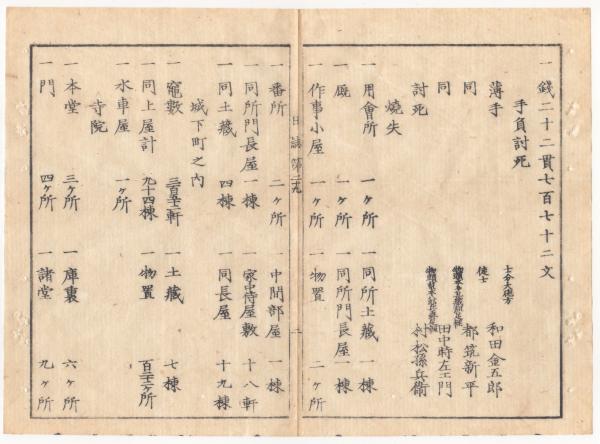 一 錢二十二貫七百七十二文
手負討死
薄手 士分大砲方 和田金五郎
同 徒士 都筑新平
同 田中時左エ門
討死 村松孫兵衛
燒失
一 用會所 一ヶ所 一 同所土藏 一棟
一 廐 一ヶ所 一 同所門長屋 一棟
一 作事小屋 一ヶ所 一 物置 二ヶ所
日誌第二十九 二
一 番所 二ヶ所 中間部屋 一棟
一 同所門長屋 一棟 一 家中侍屋敷 十八軒
一 同土藏 四棟 一 同長屋 十九棟
城下町之內
一 竈數 三百五十二軒 一 土藏 七棟
一 同上屋計 九十四棟 一 物置 百三十一ヶ所
一 水車屋 一ヶ所
寺院
一 本堂 三ヶ所 一 庫裏 六ヶ所
一 門 四ヶ所 一 諸堂 九ヶ所